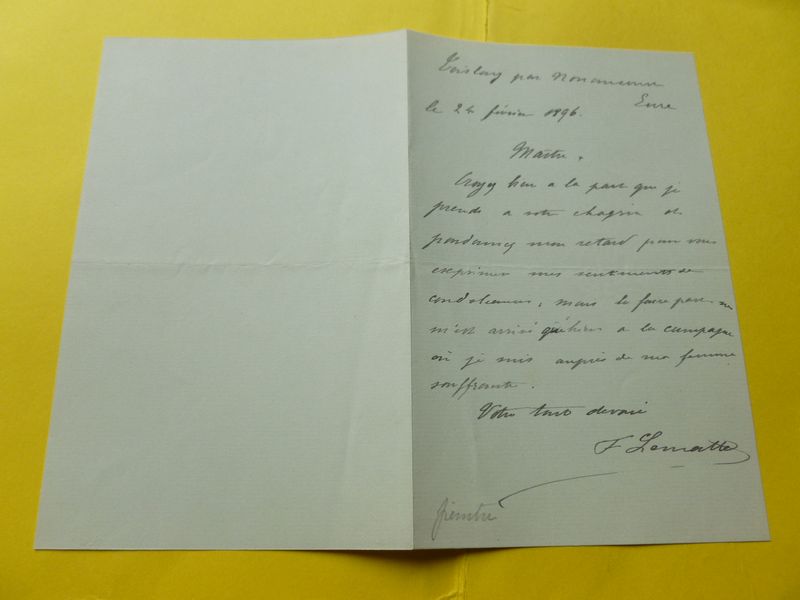 par Nonancourt
Eure
le 24 février 1896.
Maître,
Croyez bien a la part que je
prends a votre chagrin et
pardonnez mon retard pour vous
exprimer mes sentiments de
condoleances, mais le faire part ne
m'est arrivé qu'hier a la campagne
où je suis auprès de ma femme
souffrante.
Votre tout dévoué
F Lematte
peintre